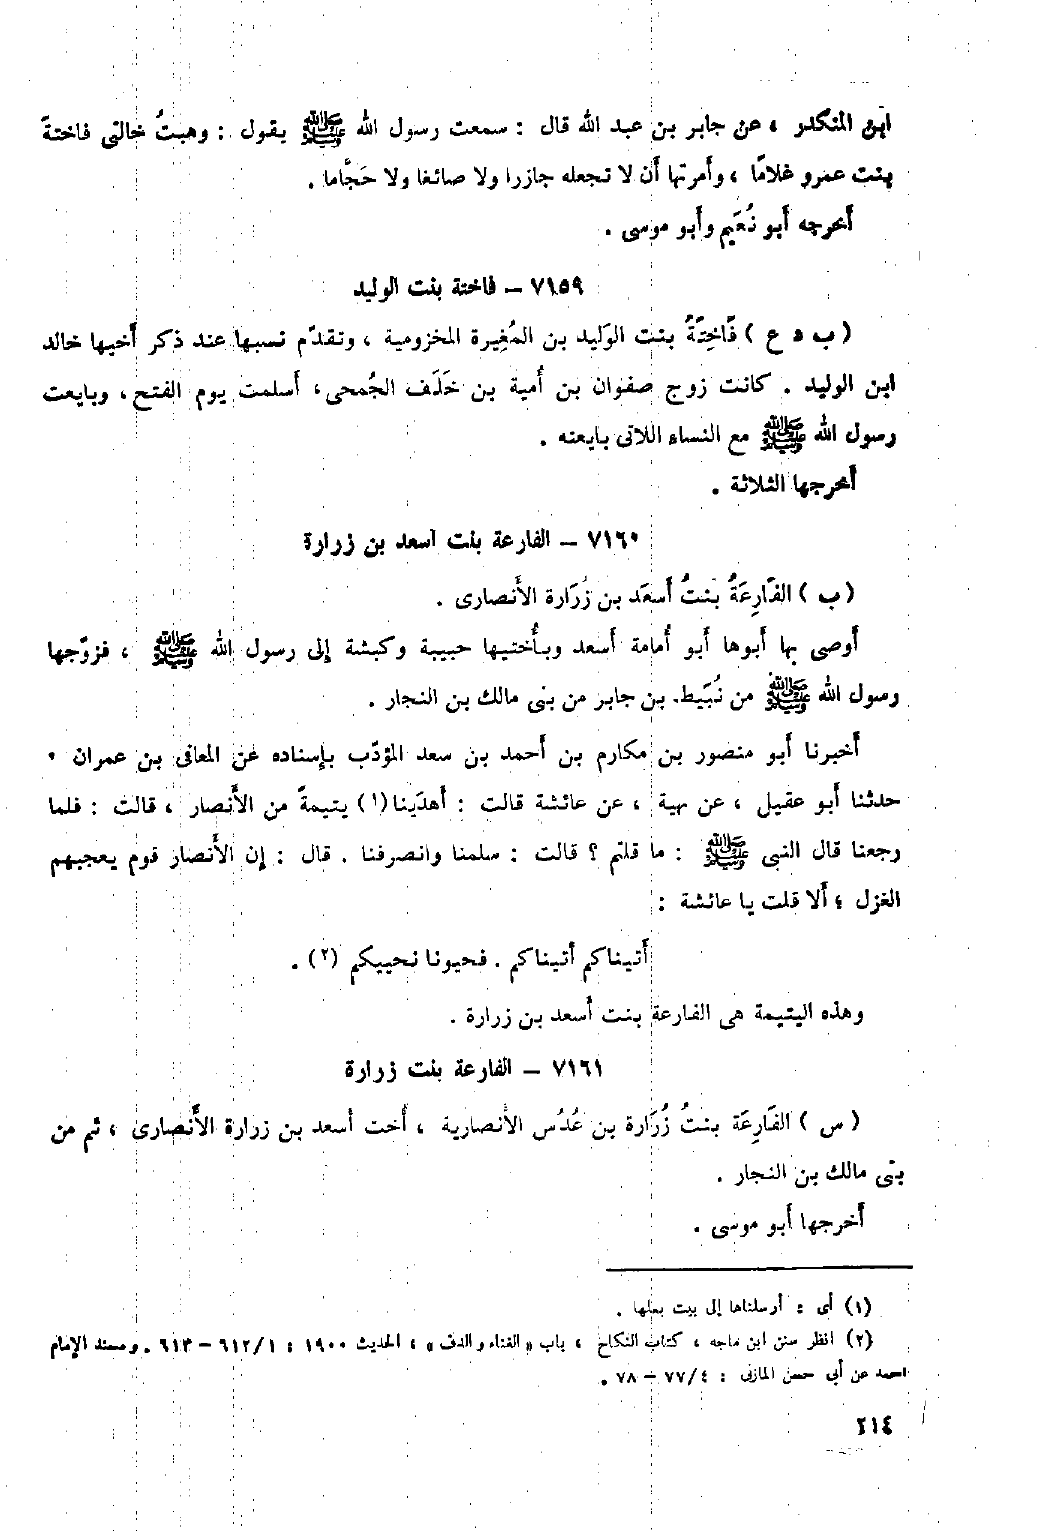 ابن المنكدر ، عن جابر بن عبد الله قال : سمعت رسول الله ﷺ يقول : وهبتُ خالتى فاختةَ
بنت عمرو غلامًا ، وأمرتها أن لا تجعله جازرا ولا صائغا ولا حَجَّاما .
أخرجه أبو نُعَيم وأبو موسى .
٧١٥٩ – فاختة بنت الوليد
( ب د ع ) فَاخِتَةُ بنت الوَليد بن المُغِيرة المخزومية ، وتقدّم نسبها عند ذكر أخيها خالد
ابن الوليد . كانت زوج صفوان بن أُمية بن خَلَف الجُمحى، أسلمت يوم الفتح ، وبايعت
رسول الله ﷺ مع النساء اللاتى بايعنه .
أخرجها الثلاثة .
٧١٦٠ – الفارعة بنت أسعد بن زرارة
( ب ) الفَارِعَةُ بنتُ أَسعَد بن زُرَارة الأَنصارى .
أَوصى بها أَبوها أَبو أُمامة أَسعد وبأُختيها حبيبة وكبشة إلى رسول الله ﷺ ، فزوّجها
رسول الله ﷺ من نُبَيط بن جابر من بنى مالك بن النجار .
أَخبرنا أَبو منصور بن مكارم بن أَحمد بن سعد المؤدّب بإسناده عن المعافى بن عمران ،
حدثنا أَبو عقيل ، عن بهية ، عن عائشة قالت : أَهدَينا(١) يتيمةً من الأَنصار ، قالت : فلما
رجعنا قال النبى ﷺ : ما قلتم ؟ قالت : سلمنا وانصرفنا . قال : إن الأَنصار قوم يعجبهم
الغزل ، أَلا قلت يا عائشة :
أَتيناكم أَتيناكم . فحيونا نحييكم (٢) .
وهذه اليتيمة هى الفارعة بنت أَسعد بن زرارة .
٧١٦١ – الفارعة بنت زرارة
( س ) الفَارِعَة بنتُ زُرَارة بن عُدُس الأنصارية ، أُخت أسعد بن زرارة الأَنصارى ، ثم من
بنى مالك بن النجار .
أَخرجها أَبو موسى .
(١) أى : أرسلناها إلى بيت بعلها .
(٢) انظر سنن ابن ماجه ، كتاب النكاح ، باب « الغناء والدف » ، الحديث ١٩٠٠ : ٦١٢/١ – ٦١٣ . ومسند الإمام
أحمد عن أبى حسن المازنى : ٧٧/٤ – ٧٨ .
٢١٤